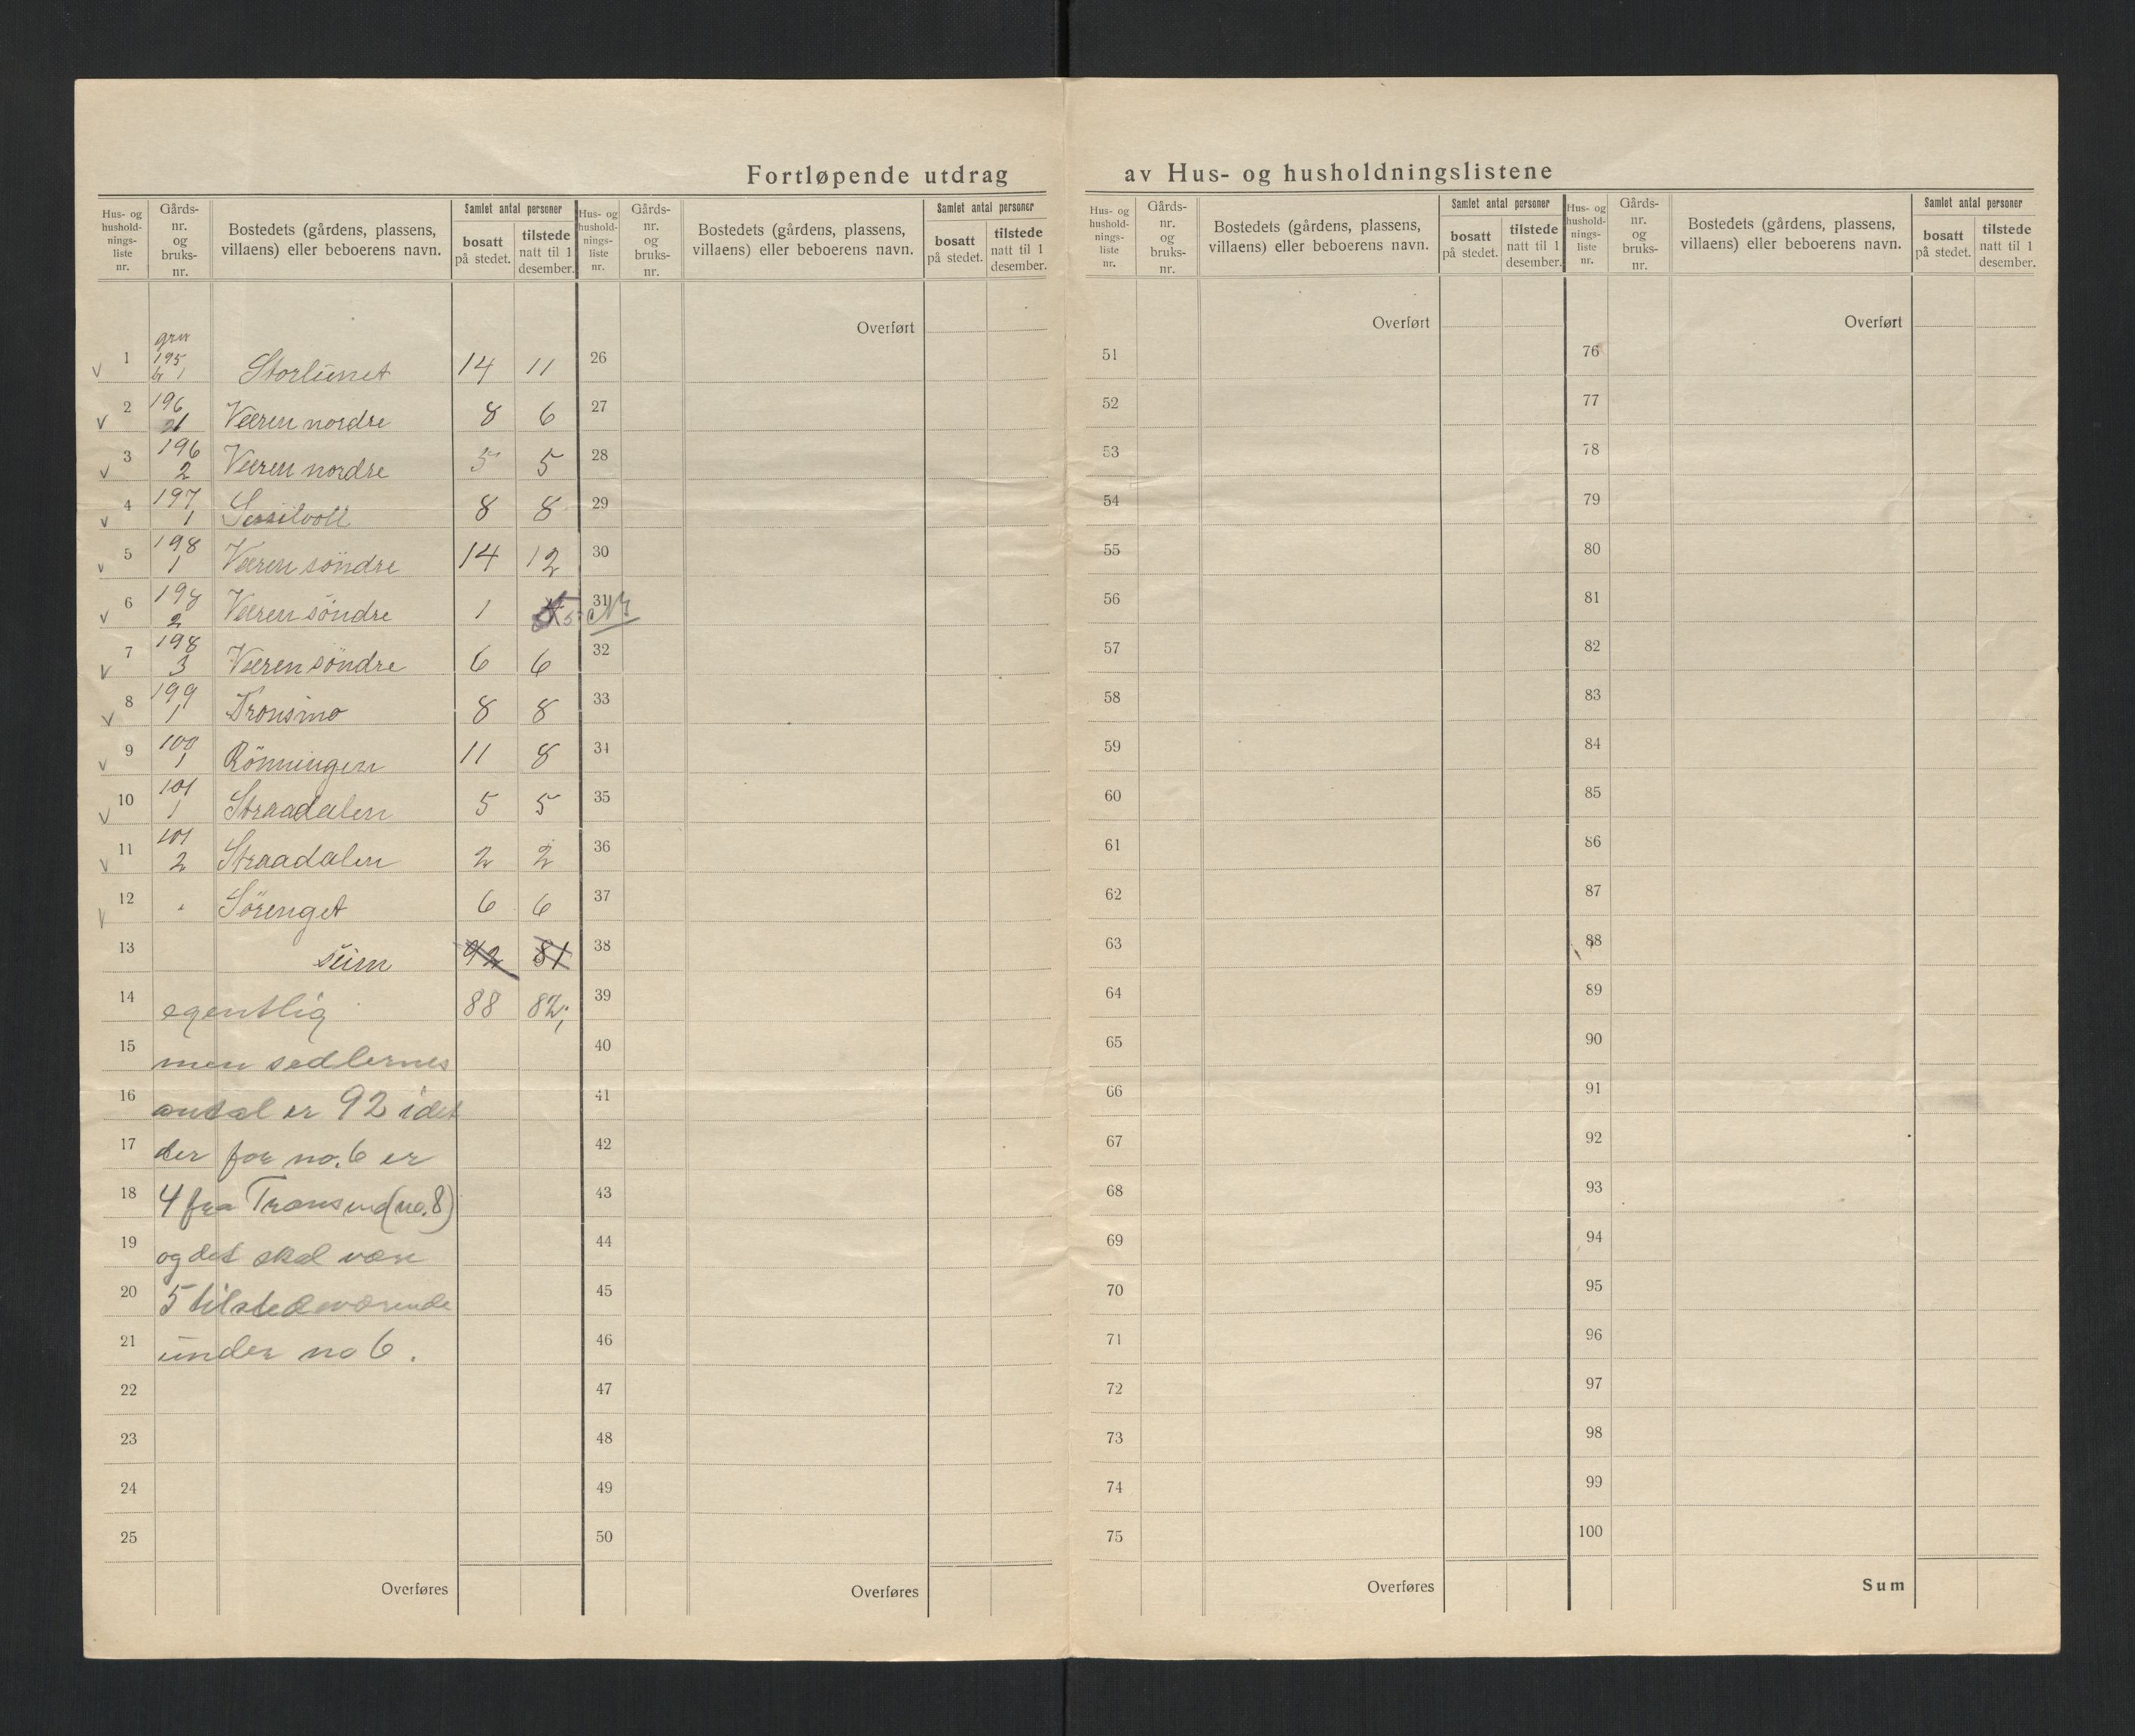 Fortløpende utdrag av Hus- og husholdningslistene
Hus- og hushold-nings-liste nr. Gårds-nr. og bruks-nr. Bostedets (gårdens, plassens, villaens) eller beboerens navn. Samlet antal personer bosatt på stedet. tilstede natt til 1 desember.
Hus- og hushold-nings-liste nr. Gårds-nr. og bruks-nr. Bostedets (gårdens, plassens, villaens) eller beboerens navn. Samlet antal personer bosatt på stedet. tilstede natt til 1 desember.
Hus- og hushold-nings-liste nr. Gårds-nr. og bruks-nr. Bostedets (gårdens, plassens, villaens) eller beboerens navn. Samlet antal personer bosatt på stedet. tilstede natt til 1 desember.
Hus- og hushold-nings-liste nr. Gårds-nr. og bruks-nr. Bostedets (gårdens, plassens, villaens) eller beboerens navn. Samlet antal personer bosatt på stedet. tilstede natt til 1 desember.
Overført Overført Overført
1 195 br 1 Storlunet 14 11 26 51 76
2 196 1 Veeren nordre 8 6 27 52 77
3 196 2 Veeren nordre 5 5 28 53 78
4 197 1 8 8 29 54 79
5 198 1 Veeren söndre 14 12 30 55 80
6 198 2 Veeren söndre 1 5 31 56 81
7 198 3 Veeren söndre 6 6 32 57 82
8 199 1 Tronsmo 8 8 33 58 83
9 100 1 Rönningen 11 8 34 59 84
10 101 1 Straadalen 5 5 35 60 85
11 101 2 Straadalen 2 2 36 61 86
12 Sörenget 6 6 37 62 87
13 sum 92 81 38 63 88
14 egentlig 88 82; 39 64 89
15 men sedlernes 40 65 90
16 antal er 92 idet 41 66 91
17 der for no. 6 er 42 67 92
18 4 fra Tronsmo (no. 8) 43 68 93
19 og det skal være 44 69 94
20 5 tilstedeværende 45 70 95
21 under no 6. 46 71 96
22 47 72 97
23 48 73 98
24 49 74 99
25 50 75 100
Overføres Overføres Overføres Sum